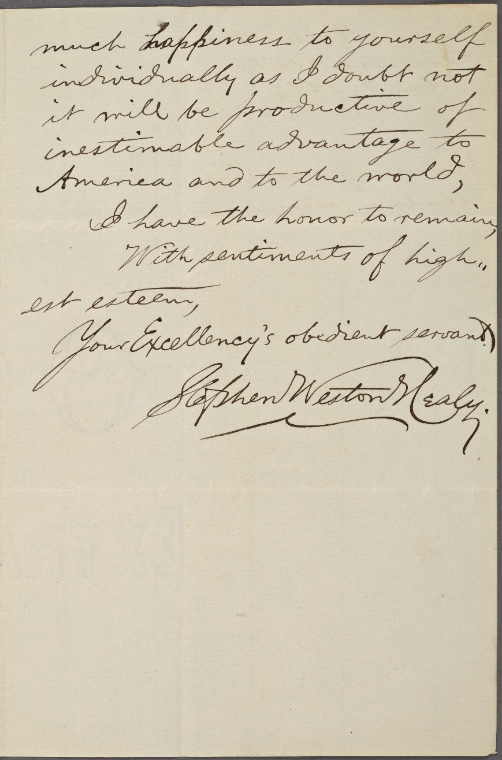 much happiness to yourself
individually as I doubt not
it will be productive of
inestimable advantage to
America and to the world,
I have the honor to remain,
With sentiments of high„
est esteem,
Your Excellency's obedient servant
Stephen Weston Healy.